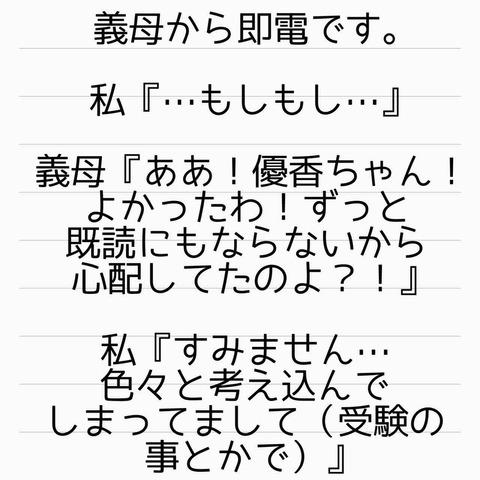 義母から即電です。
私『…もしもし…』
義母『ああ！優香ちゃん！
よかったわ！ずっと
既読にもならないから
心配してたのよ？！』
私『すみません…
色々と考え込んで
しまってまして（受験の
事とかで）』